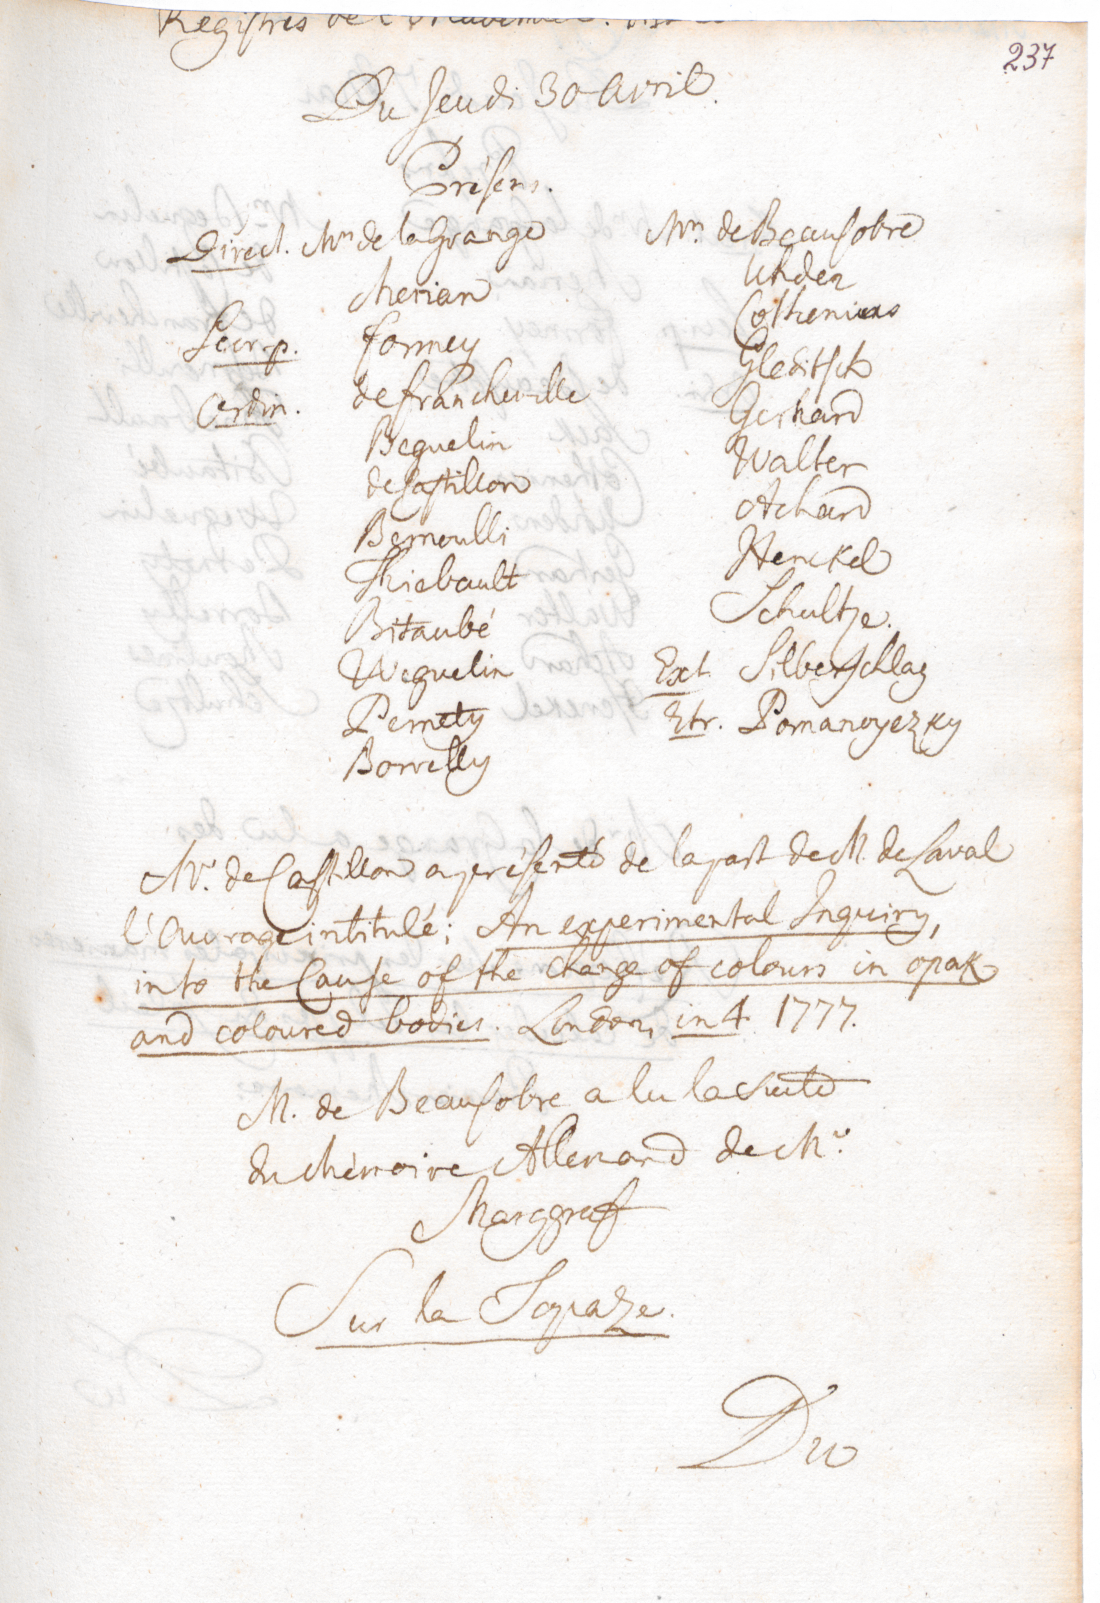 Registres de l'
237
Du Jeudi 30 Avril.
Présens.
Direct. Mrs de la Grange
Merian
Secr. p. Formey
Ordin. de Francheville
Beguelin
de Castillon
Bernoulli
Thiebault
Bitaubé
Weguelin
Pernety
Borrelly
Mrs. de Beausobre
Uhden
Cothenius
Gleditsch
Gerhard
Walter
Achard
Henckel
Schultze.
Ext. Silberschlag
Etr. Pomanoyezky
Mr. de Castillon a présenté de la part de M. de Laval
l'Ouvrage intitulé; An experimental Inquiry,
into the Cause of the Change of colours in opak
and coloured bodies. London, in 4. 1777.
M. de Beausobre a lu la Suite
du Mémoire Allemand de Mr.
Marggraf
Sur la Topaze.
Du